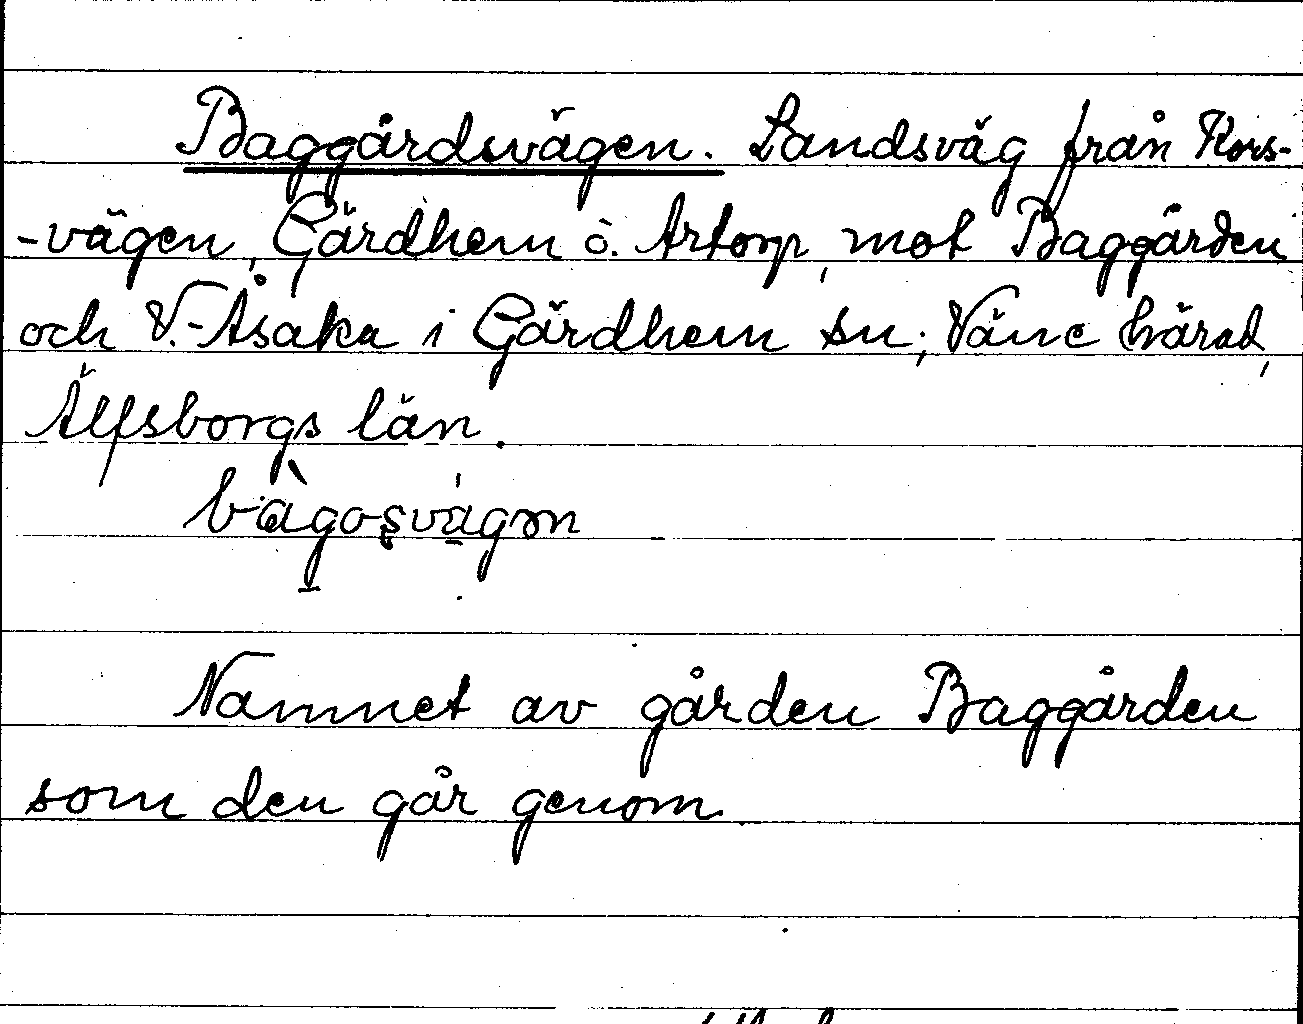 Baggårdsvägen. Landsväg från Kors-
-vägen, Gärdhem ö. Artorp, mot Baggården
och V.-Åsaka i Gärdhem sn; Väne härad,
Älfsborgs län.
Namnet av gården Baggården
som den går genom.